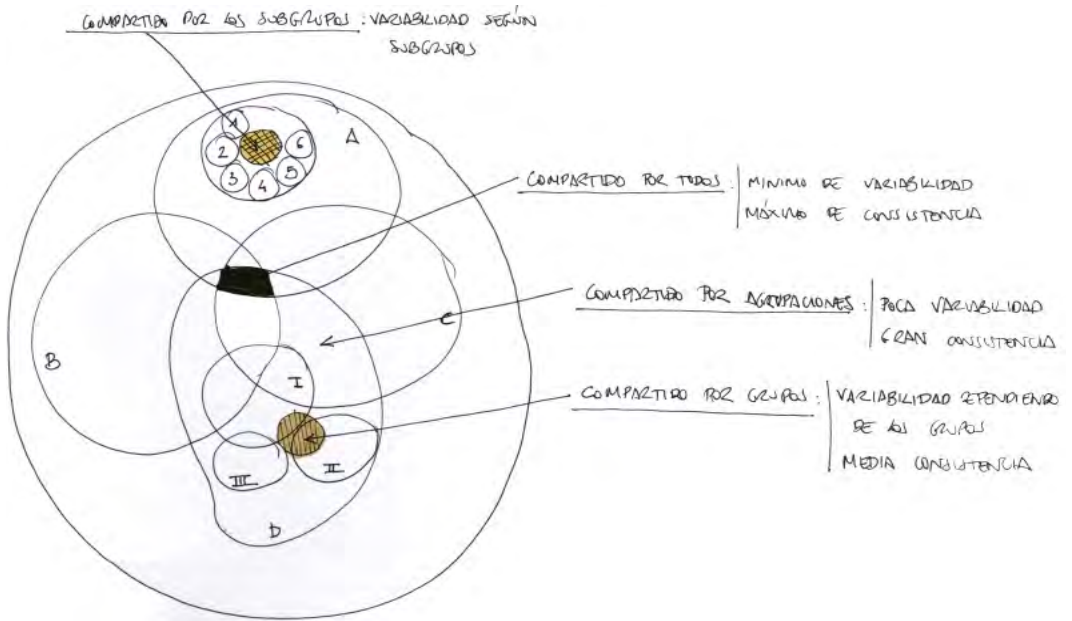 COMPARTIDO POR LOS SUBGRUPOS : VARIABILIDAD SEGÚN
SUBGRUPOS
A
1
2
3
4
5
6
COMPARTIDO POR TODOS : MINIMO DE VARIABILIDAD
MÁXIMO DE CONSISTENCIA
COMPARTIDO POR AGRUPACIONES : POCA VARIABILIDAD
GRAN CONSISTENCIA
B
C
I
COMPARTIDO POR GRUPOS : VARIABILIDAD DEPENDIENDO
DE LOS GRUPOS
MEDIA CONSISTENCIA
III
II
D